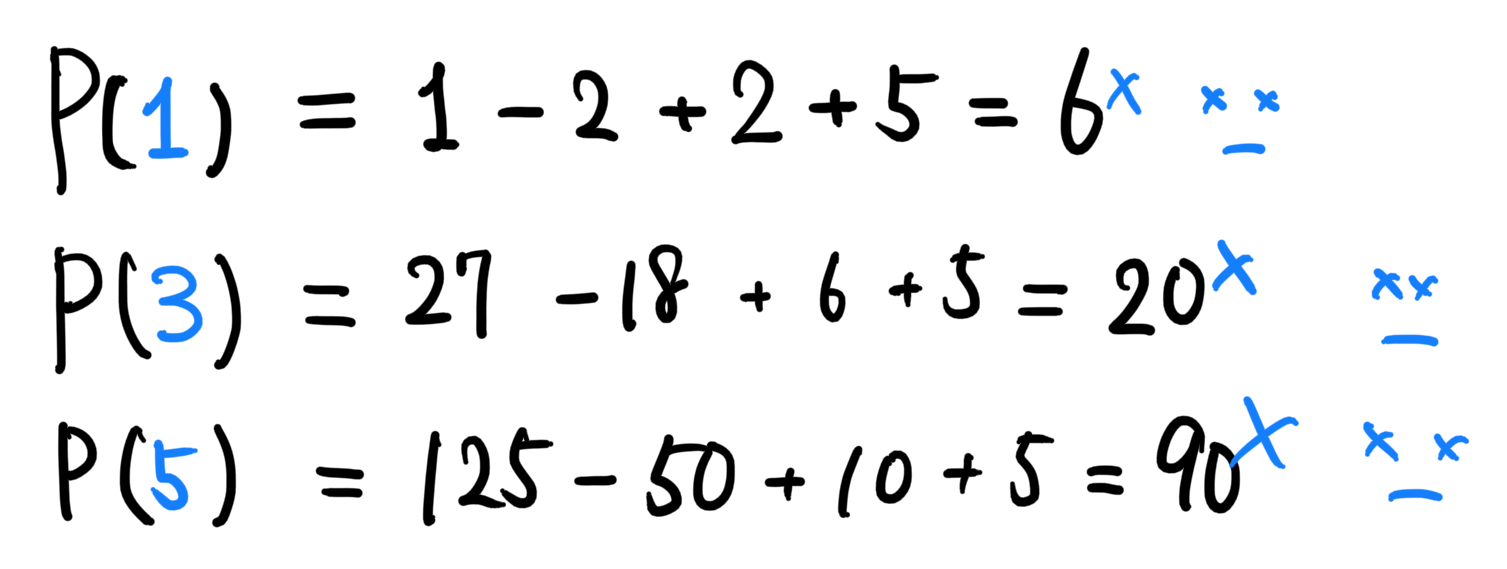 P(1) = 1 - 2 + 2 + 5 = 6 x x x
P(3) = 27 - 18 + 6 + 5 = 20 x x x
P(5) = 125 - 50 + 10 + 5 = 90 x x x